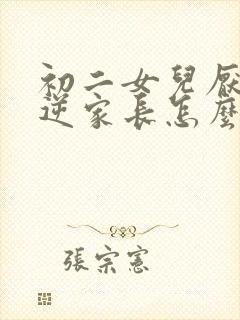 初二女兒厭
逆家長怎麼
張宗憲